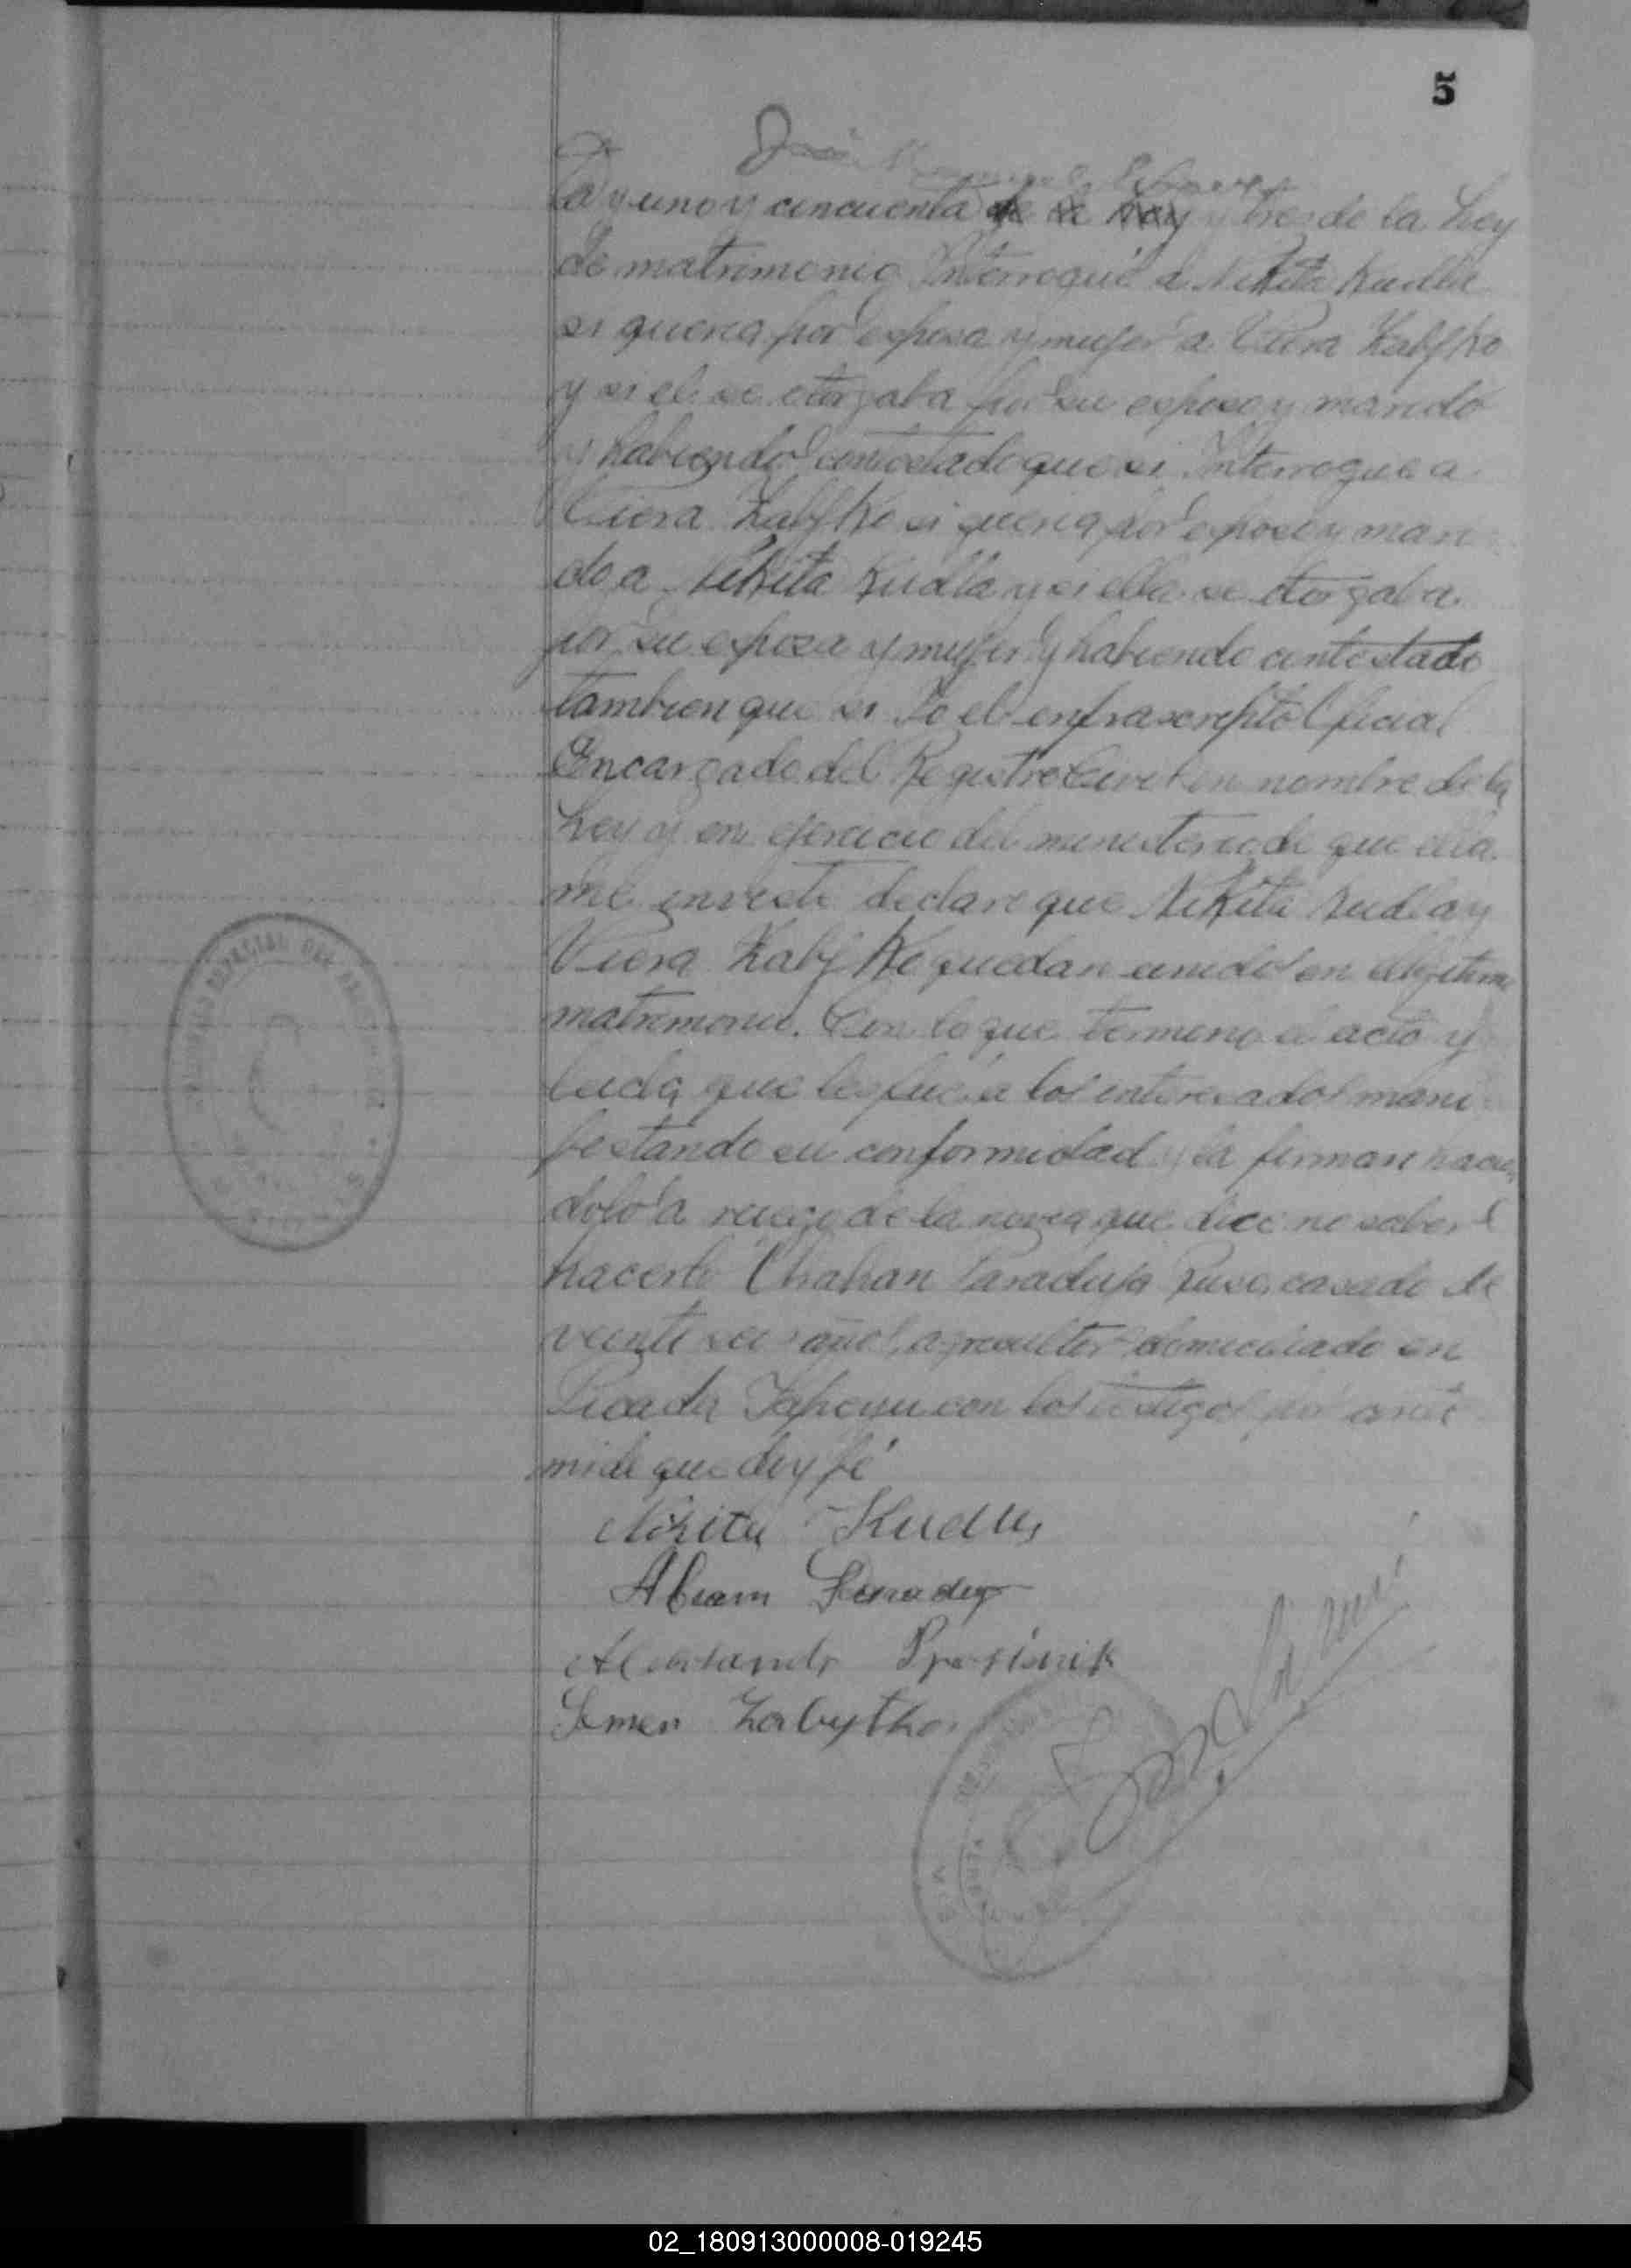 5
ta y uno y cincuenta y tres de la Ley
de matrimonio Interrogué a Nikita Kudla
si queria por esposa y mujer a Viera Zabjtko
y si el se otorgaba por su esposo y marido
y habiendo contestado que si Interrogue a
Viera Zabjtko si queria por esposo y mari
do a Nikita Kudla y si ella se otorgaba
por su esposa y mujer y habiendo contestado
tambien que si Yo el enfrascripto Oficial
Encargado del Registro Civil en nombre de la
Ley y en ejercicio del ministerio de que ella
me inviste declare que Nikita Kudla y
Viera Zabjtko quedan unidos en legitimo
matrimonio. Con lo que termino el acto y
leida que les fue a los interesados mani
festando su conformidad y la firman hacien
dolo a ruego de la novia que dice no saber
hacerlo Paraduja Ruso, casado de
veinte seis años, agricultor domiciliado en
Picada Yapeyu con los testigos por ante
mi de que doy fé
Nikita Kudla
Abram
Semen Zabytko
02_180913000008-019245